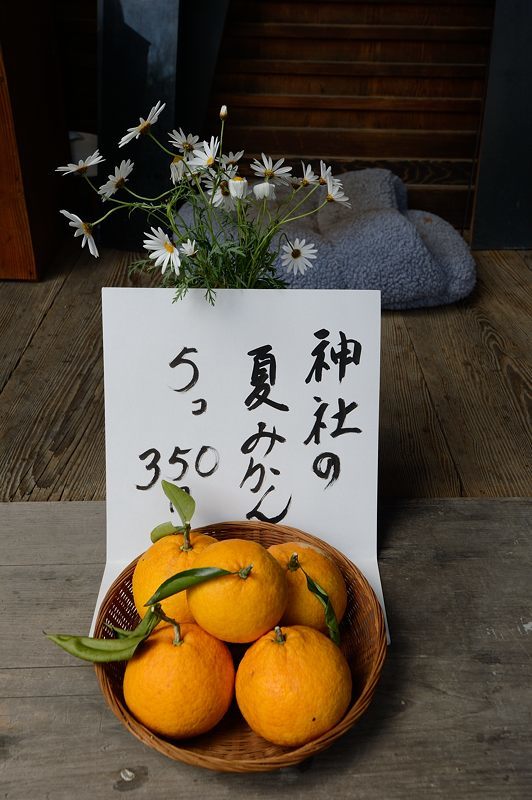 神社の
夏みかん
5コ
350